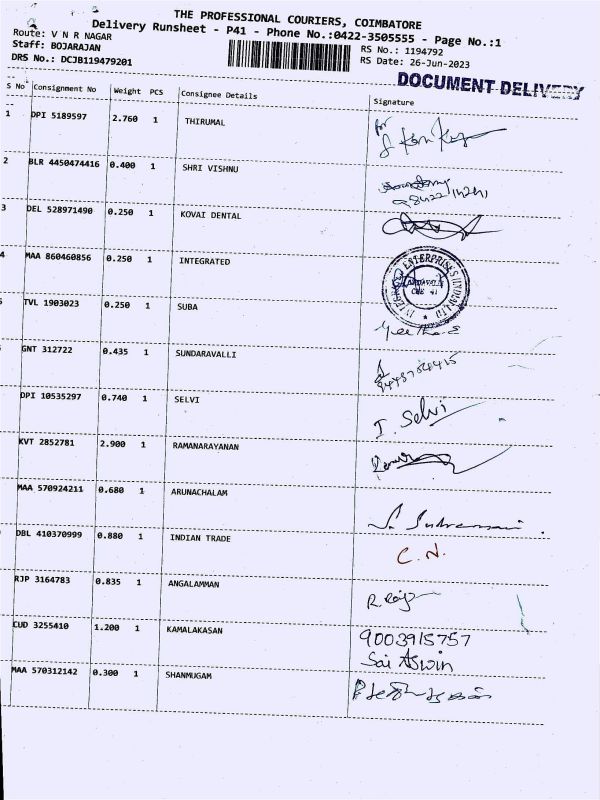 THE PROFESSIONAL COURIERS, COIMBATORE
Delivery Runsheet - P41 - Phone No.:0422-3505555 - Page No.:1
Route: V N R NAGAR
RS No.: 1194792
Staff: BOJARAJAN
RS Date: 26-Jun-2023
DRS No.: DCJB119479201
DOCUMENT DELIVERY
S No Consignment No Weight PCS Consignee Details Signature
1 DPI 5189597 2.760 1 THIRUMAL for
2 BLR 4450474416 0.400 1 SHRI VISHNU
3 DEL 528971490 0.250 1 KOVAI DENTAL
4 MAA 860460856 0.250 1 INTEGRATED
ENTERPRISES
TVL 1903023 0.250 1 SUBA
Geetha.S
GNT 312722 0.435 1 SUNDARAVALLI
DPI 10535297 0.740 1 SELVI I. Selvi
KVT 2852781 2.900 1 RAMANARAYANAN
MAA 570924211 0.680 1 ARUNACHALAM
DBL 410370999 0.880 1 INDIAN TRADE C.N.
RJP 3164783 0.835 1 ANGALAMMAN
CUD 3255410 1.200 1 KAMALAKASAN 9003915757
Sai Aswin
MAA 570312142 0.300 1 SHANMUGAM